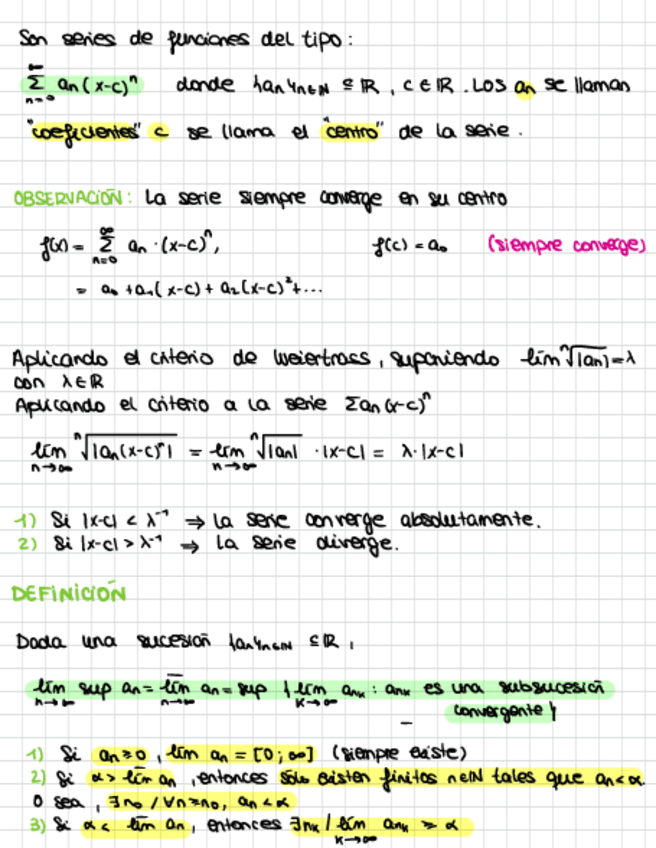 Son series de funciones del tipo:
∞ Σ n=0 an(x-c)^n donde {an}n∈N ⊆ R, c∈R. Los an se llaman
"coeficientes" c se llama el "centro" de la serie.
OBSERVACIÓN: La serie siempre converge en su centro
f(x) = ∞ Σ n=0 an·(x-c)^n, f(c) = a0 (siempre converge)
= a0 + a1(x-c) + a2(x-c)^2 + ...
Aplicando el criterio de Weiertrass, suponiendo lím ⁿ√|an| = λ
con λ∈R
Aplicando el criterio a la serie Σan(x-c)^n
lím n→∞ ⁿ√|an(x-c)^n| = lím n→∞ ⁿ√|an| · |x-c| = λ·|x-c|
1) Si |x-c| < λ^-1 ⇒ la serie converge absolutamente.
2) Si |x-c| > λ^-1 ⇒ la serie diverge.
DEFINICIÓN
Dada una sucesión {an}n∈N ⊆ R,
lím sup n→∞ an = l̅í̅m̅ n→∞ an = sup { lím k→∞ ank : ank es una subsucesión
convergente }
1) Si an ≥ 0, l̅í̅m̅ an = [0; ∞] (siempre existe)
2) Si α > l̅í̅m̅ an, entonces sólo existen finitos n∈N tales que an < α.
O sea, ∃n0 / ∀n ≥ n0, an < α
3) Si α < l̅í̅m̅ an, entonces ∃nk / lím k→∞ ank ≥ α